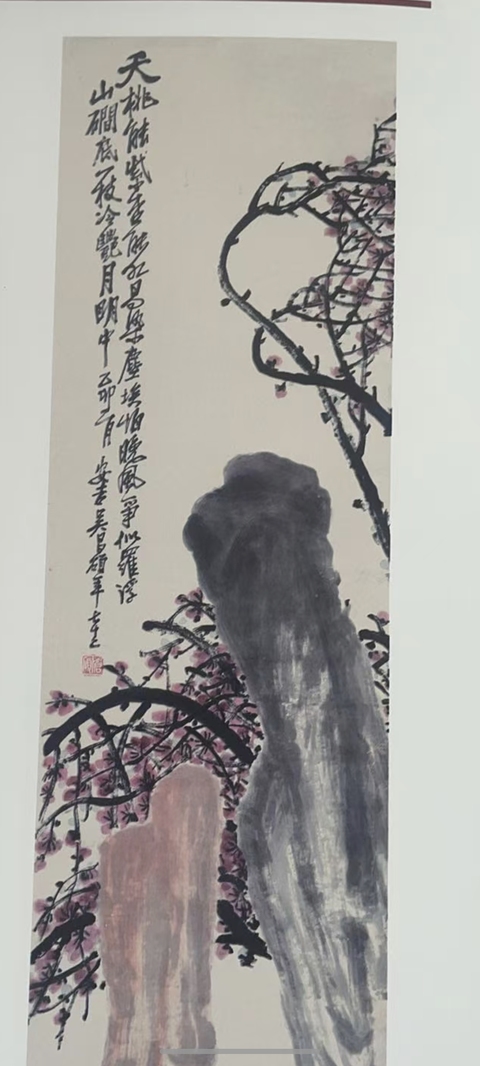 夭桃能紫杏能紅易染塵埃怕晚風爭似羅浮
山磵底一枝冷豔月明中 乙卯二月 安吉吳昌碩年七十二